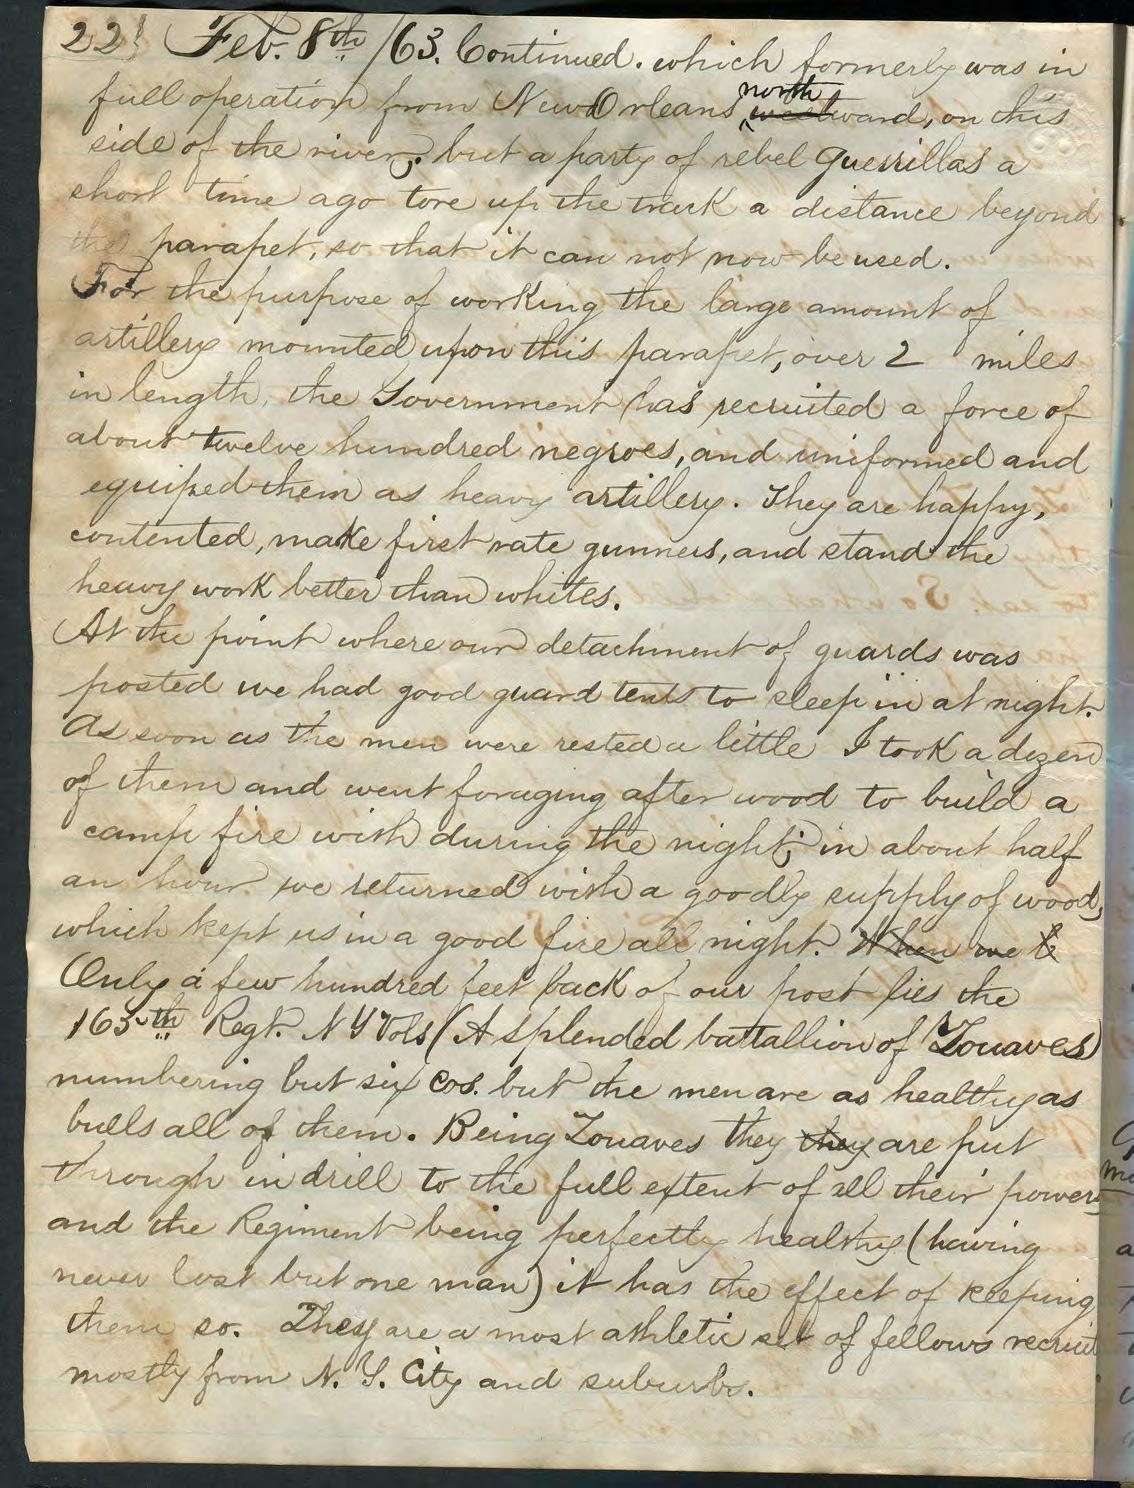 22! Feb. 8th /63. Continued. which formerly was in
full operation from New Orleans north westward, on this
side of the river; but a party of rebel guerrillas a
short time ago tore up the track a distance beyond
the parapet, so that it can not now be used.
For the purpose of working the large amount of
artillery mounted upon this parapet, over 2 miles
in length, the Government has recruited a force of
about twelve hundred negroes, and uniformed and
equiped them as heavy artillery. They are happy,
contented, make first rate gunners, and stand the
heavy work better than whites.
At the point where our detachment of guards was
posted we had good guard tents to sleep in at night.
As soon as the men were rested a little I took a dozen
of them and went foraging after wood to build a
camp fire with during the night; in about half
an hour we returned with a goodly supply of wood,
which kept us in a good fire all night. When we
Only a few hundred feet back of our post lies the
165th Regt. N Y Vols (A splended battallion of Zouaves)
numbering but six cos. but the men are as healthy as
bulls all of them. Being Zouaves they they are put
through in drill to the full extent of all their powers
and the Regiment being perfectly healthy (having
never lost but one man) it has the effect of keeping
them so. They are a most athletic set of fellows recruit
mostly from N. Y. City and suburbs.